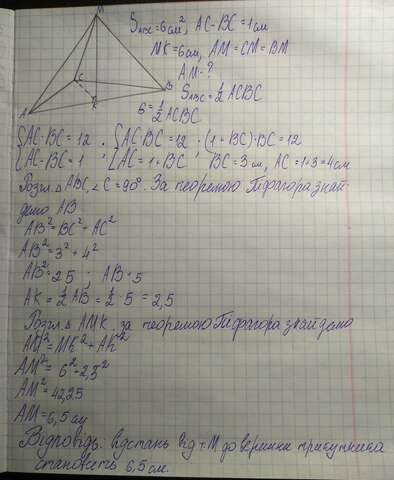 M
S_ABC = 6 см², AC-BC = 1 см
MK = 6 см, AM = CM = BM
AM - ?
S_ABC = 1/2 AC·BC
6 = 1/2 AC·BC
C
B
A
K
{AC·BC = 12 , {AC·BC = 12 ; (1+BC)·BC = 12
{AC-BC = 1 {AC = 1+BC' BC = 3 см, AC = 1+3 = 4 см
Розгл △ABC, ∠C = 90°. За теоремою Піфагора знай-
демо AB
AB² = BC² + AC²
AB² = 3² + 4²
AB² = 25 ; AB = 5
AK = 1/2 AB = 1/2 · 5 = 2,5
Розгл △ AMK за теоремою Піфагора знайдемо
AM² = MK² + AK²
AM² = 6² + 2,5²
AM² = 42,25
AM = 6,5 см
Відповідь: відстань від т. M до вершини трикутника
становить 6,5 см.